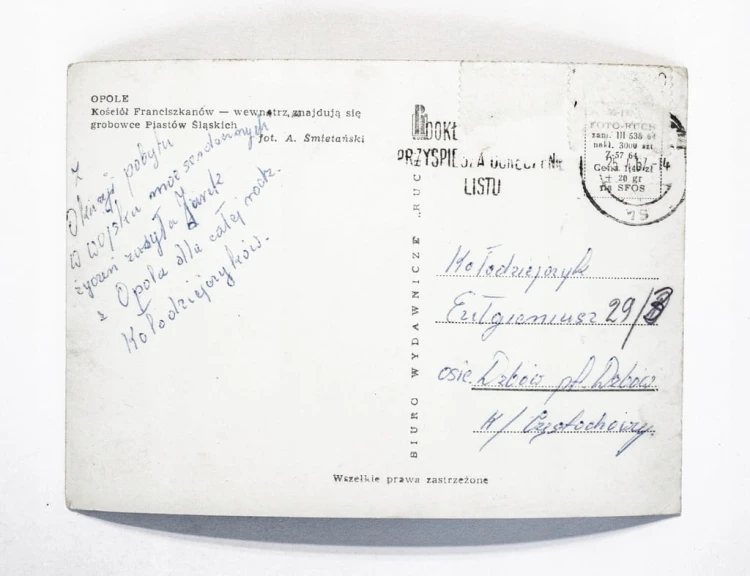 OPOLE
Kościół Franciszkanów — wewnątrz znajdują się
grobowce Piastów Śląskich
fot. A. Śmietański
Z
Okazji pobytu
w wojsku moc serdecznych
życzeń zasyła Jarek
z Opola dla całej rodz.
Kołodziejczyków.
BIURO WYDAWNICZE „RUC
PRZYSPIESZA DORĘCZENIE
LISTU
FOTO-RUCH
zam. III 538 64
nakł. 3000 szt
Z-57 64
Cena 1.40 zł
+ 20 gr
na SFOS
Kołodziejczyk
29/
osie. Dźbów pt. Dźbów
K/ Częstochowy.
Wszelkie prawa zastrzeżone